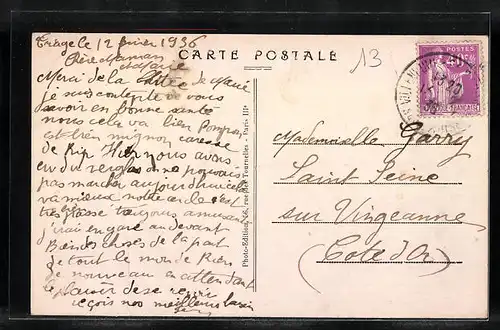 le 12 février 1936
CARTE POSTALE
13
Chère Maman
et Marie
Merci de la lettre de Marie
je suis contente de vous
savoir en bonne santé
nous cela va bien
est bien mignon caresse
de Rip Hier nous avons
eu du verglas on ne pouvais
pas marcher aujourd'hui cela
va mieux notre
très toujours
au devant
Bien des choses de la part
de tout le monde Rien
de nouveau en attendant
le plaisir de se revoir
reçois nos meilleurs baisers
Photo-Edition, 26, rue des Tournelles - Paris IIIe
POSTES
40c
FRANÇAISE
Mademoiselle Garry
Saint Seine
sur Vingeanne
(Cote d'Or)